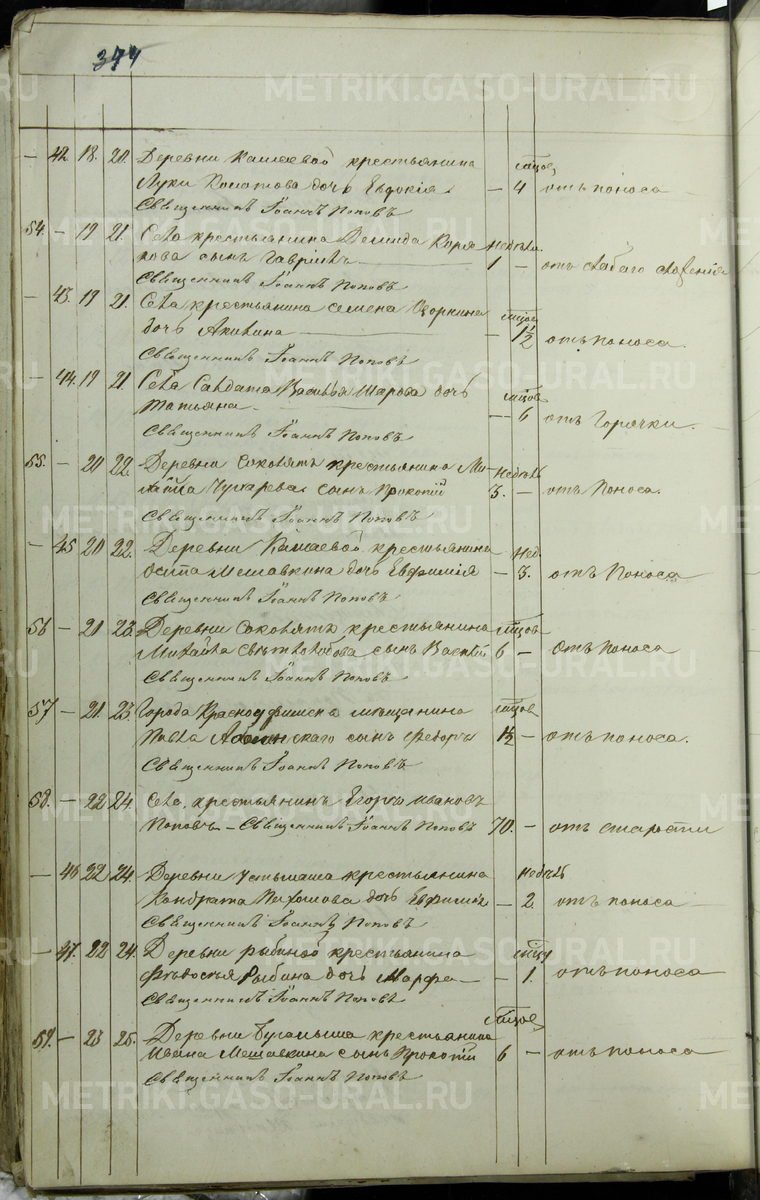 374
METRIKI.GASO-URAL.RU
— 42. 18. 20. Деревни Кашаевой крестьянина мѣцов
Луки дочь Евдокія — 4 отъ поноса
Священникъ Іоаннъ Поповъ
54. — 19 21. Села крестьянина Демида Коря недѣли
кова сынъ Гаврiилъ 1 — отъ слабаго
Священникъ Іоаннъ Поповъ
— 43. 19 21. Села крестьянина Семена мѣцов
дочь Акилина — 1½ отъ поноса.
Священникъ Іоаннъ Поповъ
— 44. 19 21. Села Салдата Василья Шарова дочь мѣцов
Татьяна — 6 отъ Горячки.
Священникъ Іоаннъ Поповъ
55. — 20 22. Деревни Соковятъ крестьянина Ми- недѣль
хайла сынъ Прокопій 3. — отъ Поноса.
Священникъ Іоаннъ Поповъ
— 45 20 22. Деревни Кашаевой крестьянина Нед.
Осипа Мешавкина дочь Евфимія — 3. отъ Поноса
Священникъ Іоаннъ Поповъ
56 — 21 23. Деревни Соковятъ крестьянина мѣцов
Михайла сынъ Василій 6 — отъ поноса
Священникъ Іоаннъ Поповъ
57 — 21. 23. Города Красноуфимска мещанина мѣцов
Павла сынъ Феодоръ 1½ — отъ поноса.
Священникъ Іоаннъ Поповъ
58. — 22 24. Села, крестьянинъ Егоръ Ивановъ
Поповъ — Священникъ Іоаннъ Поповъ 70. — отъ старости
— 46 22 24. Деревни Усть-Маша крестьянина недѣль
Кондрата Пахомова дочь Евфимія — 2 отъ поноса
Священникъ Іоаннъ Поповъ
— 47. 22 24. Деревни Рыбиной крестьянина мѣцъ
Рыбина дочь Марфа — 1. отъ поноса
Священникъ Іоаннъ Поповъ
59. — 23 25. Деревни Бугалыша крестьянина мѣцов
Ивана Мешавкина сынъ Прокопій 6 — отъ поноса
Священникъ Іоаннъ Поповъ